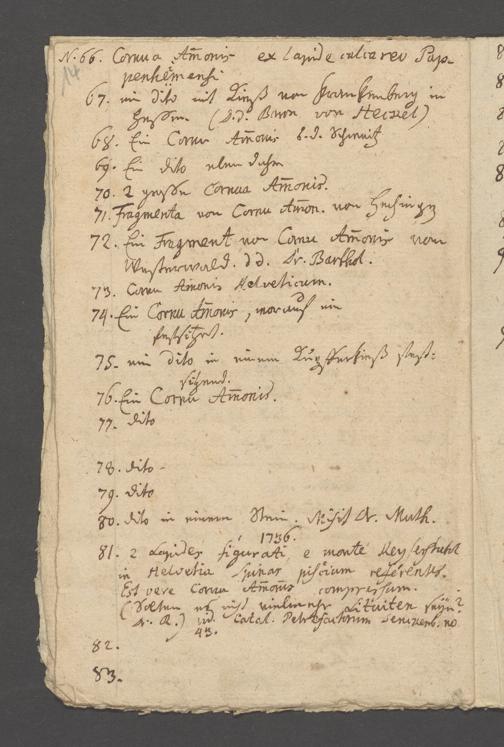 N. 66. Cornua Am̄onis ex lapide calcareo Pap-
14
penhemensi
67. ein dito mit Kieß von Frankenberg in
Heßen. (d.d. Baron von Heisel)
68. Ein Cornu Am̄onis b. d. Schmitz
69. Ein dito eben daher
70. 2 große Cornua Am̄onis.
71. Fragmenta von Cornu Am̄on. von
72. Ein Fragment von Cornu Am̄onis vom
Westerwald. d d. Dr. Barthol.
73. Cornu Am̄onis Helveticum.
74. Ein Cornu Am̄onis, worauf ein
festsitzet.
75. ein dito in einem Kupfferkieß fest-
sitzend.
76. Ein Cornu Am̄onis.
77. dito
78. dito -
79. dito
80. dito in einem Stein. Misit Dr. Muth.
1736.
81. 2 Lapides figurati e monte
in Helvetia spinas piscium referentes.
Est vere Cornu Am̄onis compressum.
( vielmehr Lituiten seyn?
Dr. R.) vid. Catal. Petrefactorum no
43.
82.
83.